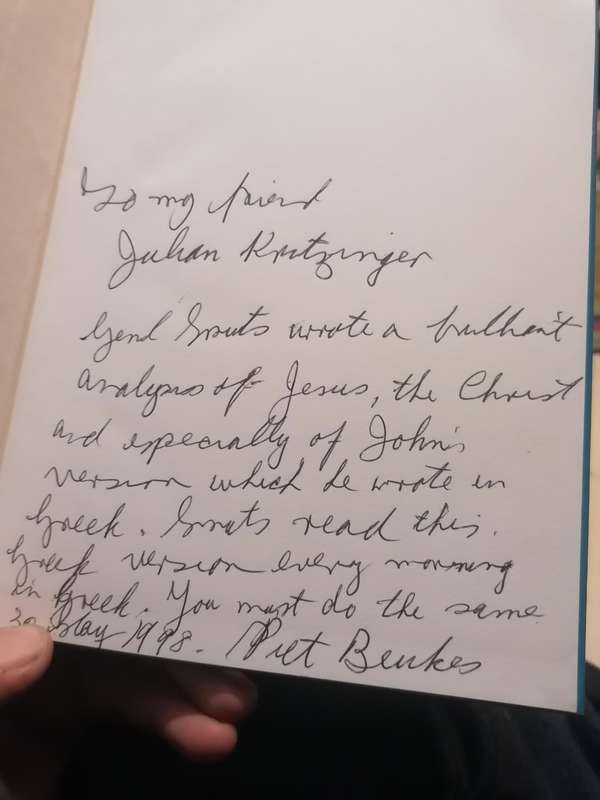 To my friend
Julian Kritzinger
Genl Smuts wrote a brilliant
analysis of Jesus, the Christ
and especially of John's
version which he wrote in
Greek. Smuts read this
Greek version every morning
in Greek. You must do the same
30 May 1998. Piet Beukes